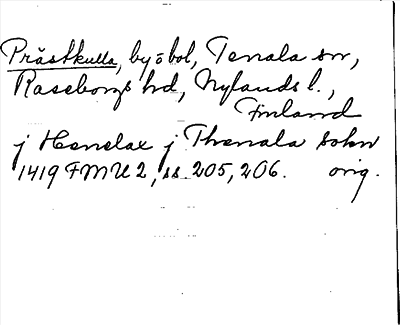 Prästkulla, by o bol, Tenala sn,
Raseborgs hd, Nylands l.,
Finland
j Henelax j Thenala sokn
1419 FMU 2, ss. 205, 206. orig.